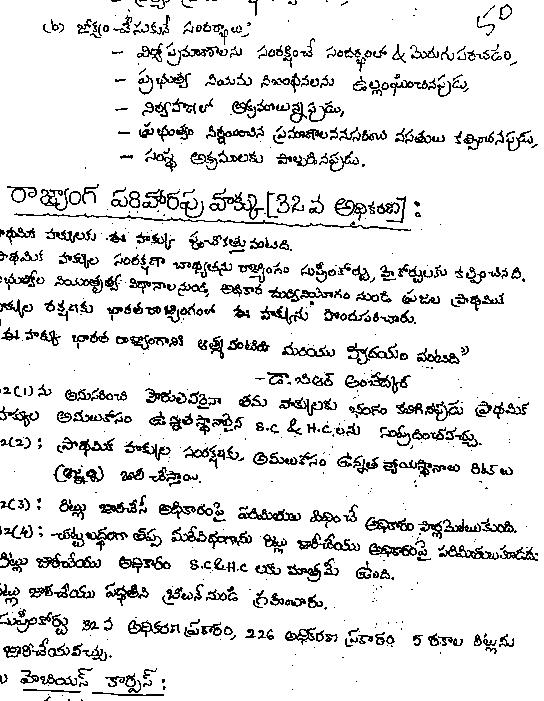 50
(b) జోక్యం చేసుకునే సందర్భాలు:
– విద్యా ప్రమాణాలను సంరక్షించే సందర్భంలో & మెరుగుపరచడం,
– ప్రభుత్వ నియమ నిబంధనలను ఉల్లంఘించినప్పుడు,
– నిర్వహణలో అక్రమాలున్నప్పుడు,
– ప్రభుత్వం నిర్ణయించిన ప్రమాణాలననుసరించి వసతులు కల్పించనప్పుడు,
– సంస్థ అక్రమాలకు పాల్పడినప్పుడు.
రాజ్యాంగ పరిహారపు హక్కు [32వ అధికరణ] :
ప్రాథమిక హక్కులకు ఈ హక్కు హృదయం వంటిది.
ప్రాథమిక హక్కుల సంరక్షణా బాధ్యతను రాజ్యాంగం సుప్రీంకోర్టు, హైకోర్టులకు కల్పించినది.
ప్రభుత్వాల నియంతృత్వ విధానాలనుండి, అధికార దుర్వినియోగం నుండి ప్రజల ప్రాథమిక
హక్కుల రక్షణకు భారత రాజ్యాంగంలో ఈ హక్కును పొందుపరచారు.
ఈ హక్కు భారత రాజ్యాంగానికి ఆత్మ వంటిది మరియు హృదయం వంటిది"
– డా. బిఆర్ అంబేద్కర్
2(1) ను అనుసరించి పౌరులెవరైనా తమ హక్కులకు భంగం కలిగినప్పుడు ప్రాథమిక
హక్కుల అమలుకోసం ఉన్నత స్థానాలైన S.C & H.C లను సంప్రదించవచ్చు.
2(2) : ప్రాథమిక హక్కుల సంరక్షణకు, అమలుకోసం ఉన్నత న్యాయస్థానాలు రిట్లు
(ఆజ్ఞలు) జారీ చేస్తాయి.
2(3) : రిట్లు జారీచేసే అధికారంపై పరిమితులు విధించే అధికారం పార్లమెంటుకుంది.
2(4) : చట్టబద్ధంగా తప్ప మరేవిధంగాను రిట్లు జారీచేయు అధికారంపై పరిమితులుకూడదు
రిట్లు జారీచేయు అధికారం S.C & H.C లకు మాత్రమే ఉంది.
రిట్లు జారీచేయు పద్ధతిని బ్రిటన్ నుండి గ్రహించారు.
సుప్రీంకోర్టు 32 వ అధికరణ ప్రకారం, 226 అధికరణ ప్రకారం 5 రకాల రిట్లును
జారీచేయవచ్చు.
హెబియస్ కార్పస్ :